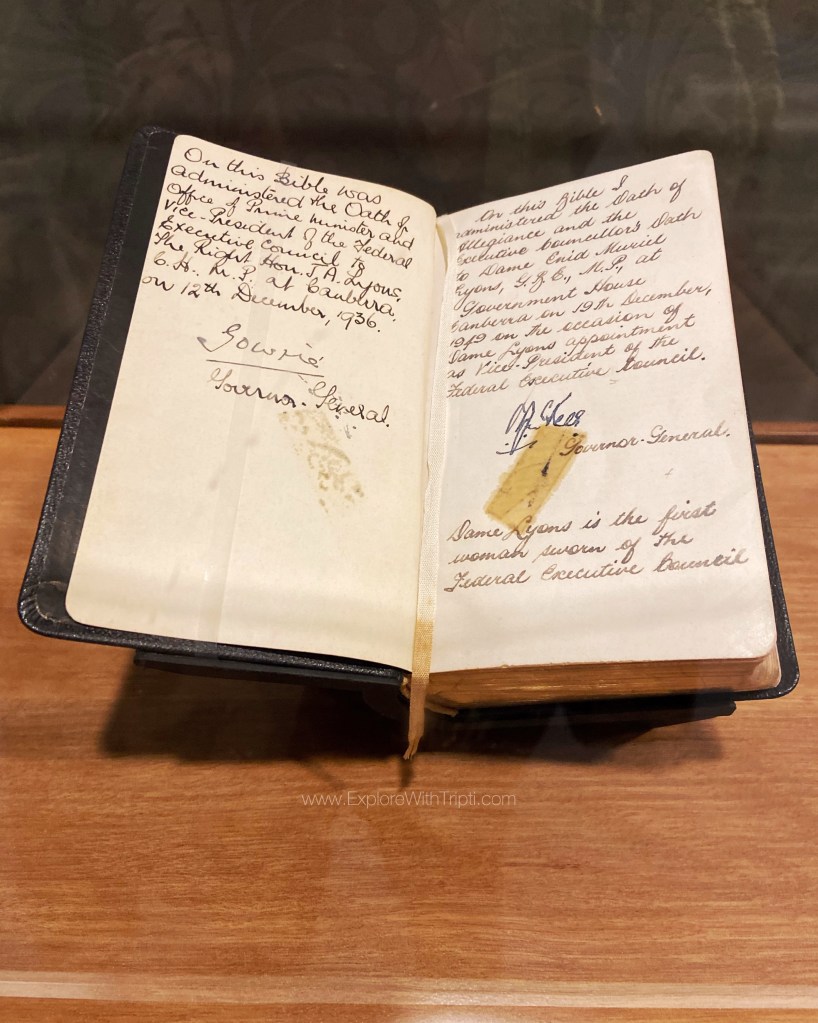 On this Bible was
administered the Oath of
Office of Prime Minister and
Vice-President of the Federal
Executive Council to
The Right Hon. J. A. Lyons,
C.H., M.P. at Canberra,
on 12th December, 1936.
Gowrie
Governor-General.
On this Bible I
administered the Oath of
Allegiance and the
Executive Councillor's Oath
to Dame Enid Muriel
Lyons, G.B.E., M.P., at
Government House
Canberra on 19th December,
1949 on the occasion of
Dame Lyons appointment
as Vice-President of the
Federal Executive Council.
Governor-General.
Dame Lyons is the first
woman sworn of the
Federal Executive Council
www.ExploreWithTripti.com